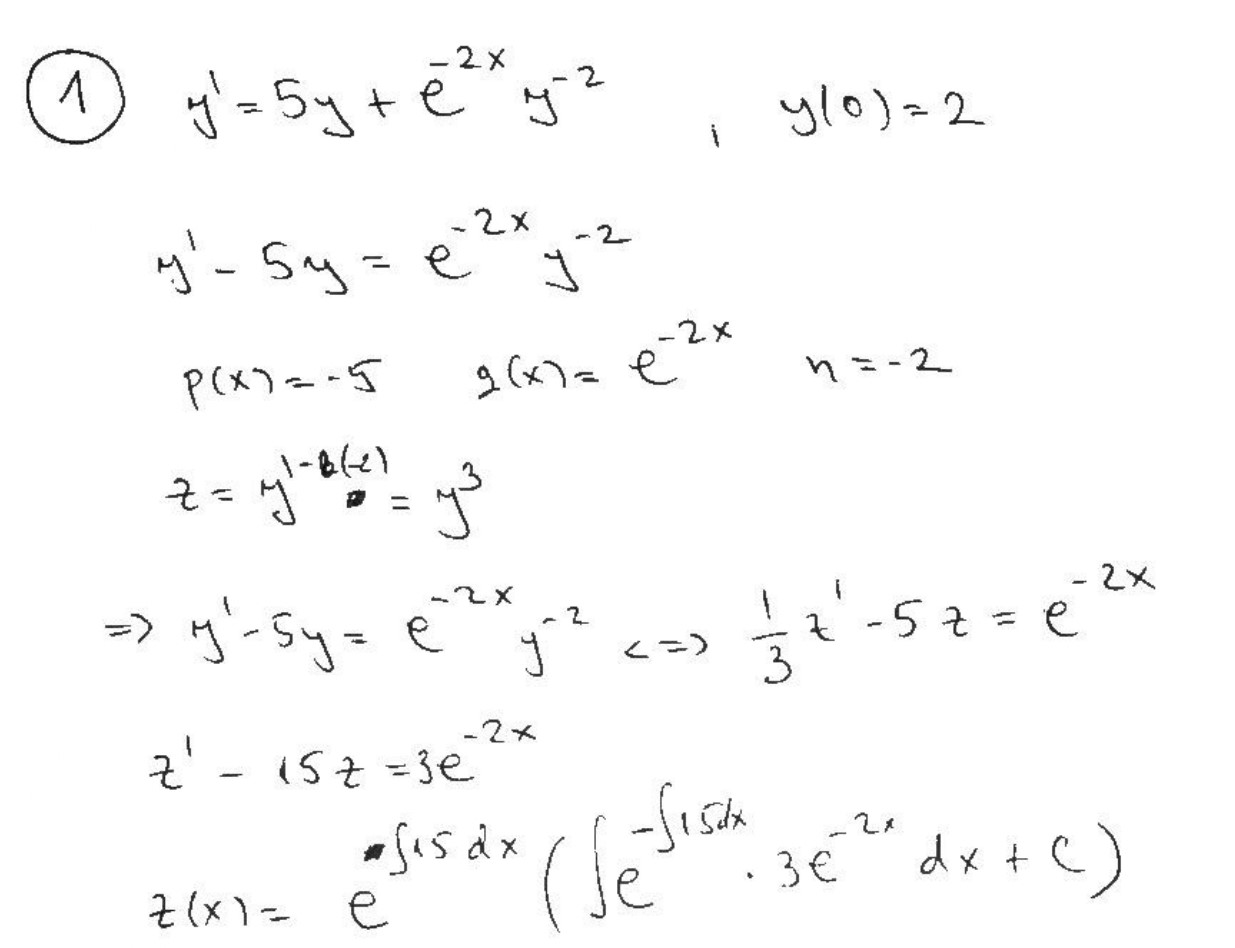 ① y' = 5y + e^{-2x} y^{-2} , y(0) = 2
y' - 5y = e^{-2x} y^{-2}
p(x) = -5 q(x) = e^{-2x} n = -2
z = y^{1-(-2)} = y^3
=> y' - 5y = e^{-2x} y^{-2} <=> \frac{1}{3} z' - 5z = e^{-2x}
z' - 15z = 3e^{-2x}
z(x) = e^{∫15dx} (∫e^{-∫15dx} · 3e^{-2x} dx + C)